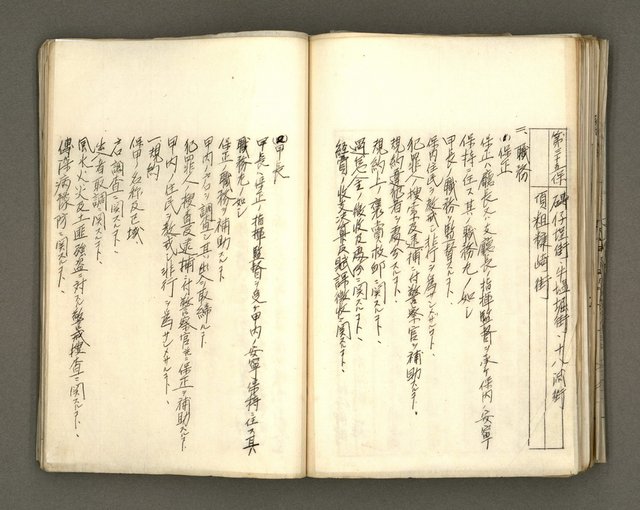 第十五保
磚仔𡍼街、牛埔堀街、十八洞街
頂粗糠崎街
三、職務
(1)保正
保正ハ廳長又ハ支廳長ノ指揮監督ヲ承ケ保内ノ安寧
保持ニ任ス其ノ職務左ノ如シ
甲長ノ職務ヲ監督スルコト
保内住民ヲ教戒シ非行ヲ為サシメザルコト、
犯罪人搜查及逮捕ニ付警察官ヲ補助スルコト、
規約違犯者ノ處分スルコト、
規約上ノ褒賞救卹ニ関スルコト、
過怠金ノ徴收及處分ニ関スルコト、
經費ノ收支決算及賦課徴收ニ関スルコト、
(2)甲長
甲長ハ保正ノ指揮監督ヲ受ケ甲内ノ安寧保持ニ任ス其
職務左ノ如シ
保正ノ職務ヲ補助スルコト
甲内ノ戸口ヲ調査シ其ノ出入ヲ取締ルコト
犯罪人搜查及逮捕ニ付警察官並ニ保正ヲ補助スルコト
甲内ノ住民ヲ教戒シ非行ヲ為サシメサルコト、
一、規約
保甲ノ名称及区域、
戸口調査ニ関スルコト、
出入者取調ニ関スルコト、
風水火災及土匪強盗ニ対スル警戒搜查ニ関スルコト、
傳染病豫防ニ関スルコト、